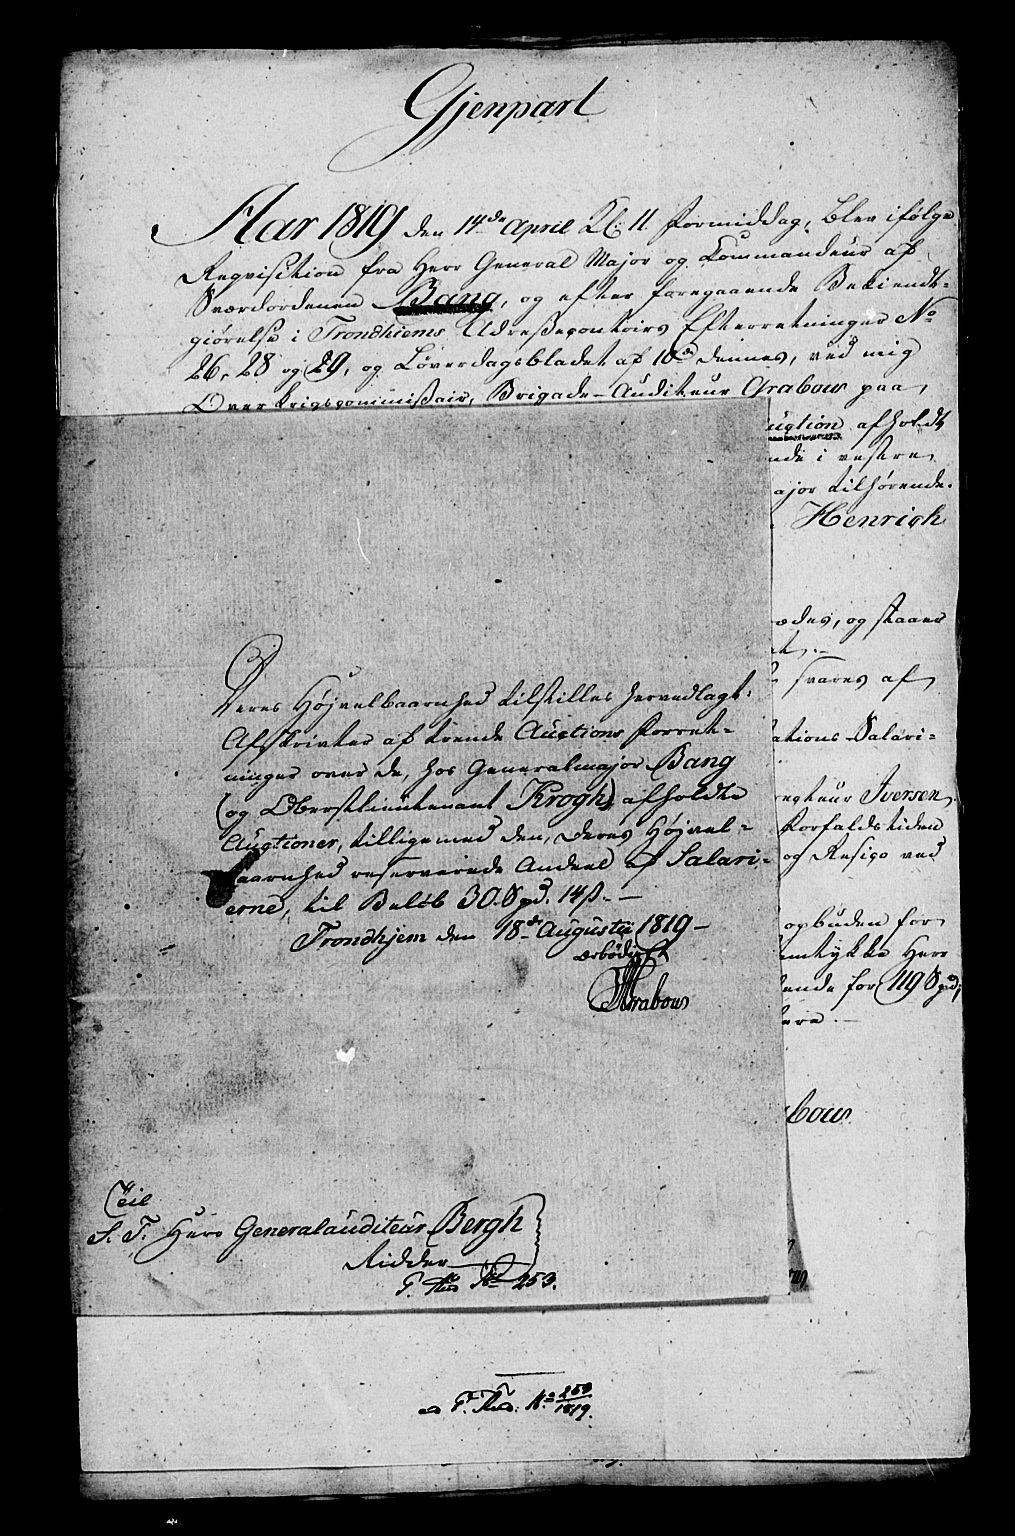 Gjenpart
Aar 1819 den 14de April Kl: 11 Formiddag, blev ifølge
Reqvisition fra Herr General Major og Commandeur af
Sværdordenen Bang, og efter foregaaende Bekiendt-
giørelse i Trondhiems Adressecontoirs Efterretninger No
26, 28 og 29, og Løverdagsbladet af 10de dennes, ved mig
Over Krigscommissair, Brigade-Auditeur Grabow paa
Auction afholdt
i vestre
Major tilhørende
Henrich
og staaer
svares af
Salari-
Iversen
Forfaldstiden
og Resico ved
opbuden for
Herr
for 119 Spd.
Deres Højvelbaarnhed tilstilles hervedlagt
Afskrivter af trende Auctions Forret-
ninger over de, hos Generalmajor Bang
(og Oberstlieutenant Krogh) afholdte
Auctioner, tilligemed den, Deres Højvel-
baarnhed reserverede Andeel af Salari-
erne, til Beløb 30 Spd. 14 s. —
Trondhjem den 18de Augustii 1819 —
ærbødigst
Grabow
Til
S. T. Herr Generalauditeur Bergh
Ridder
No 253.
No 253
1819.